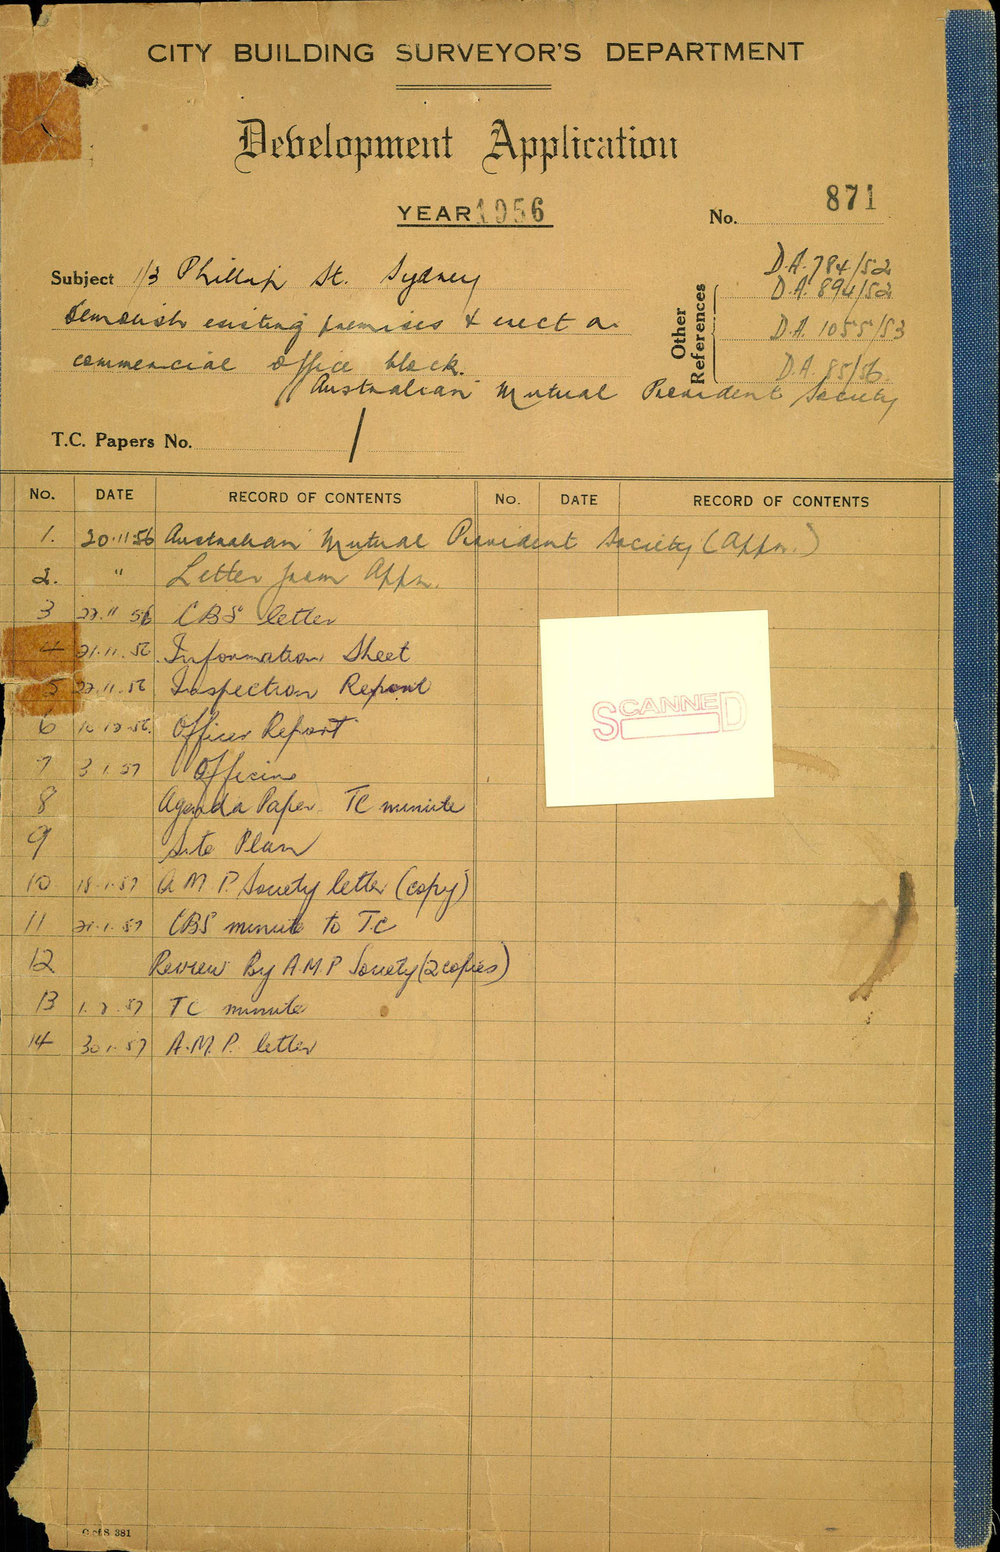 CITY BUILDING SURVEYOR'S DEPARTMENT
Development Application
YEAR 1956
No. 871
Subject 1/3 Phillip St. Sydney
demolish existing premises & erect a
commercial office block.
// Australian Mutual Provident Society
Other References
D.A. 784/52
D.A. 894/52
D.A. 1055/53
D.A. 85/56
T.C. Papers No. /
No. DATE RECORD OF CONTENTS No. DATE RECORD OF CONTENTS
1. 20.11.56 Australian Mutual Provident Society (Appn.)
2. " Letter from Appn.
3 22.11.56 CBS letter
4 21.11.56 Information Sheet
5 22.11.56 Inspection Report
6 Officer Report
7 3.1.57 Officers
8 Agenda Paper TC minute
9 Site Plan
10 18.1.57 A M P. Society letter (copy)
11 21.1.57 CBS minute to TC
12 Review By A.M.P Society (2 copies)
13 1.2.57 TC minute
14 30.1.57 A.M.P. letter
SCANNED
C of S 381